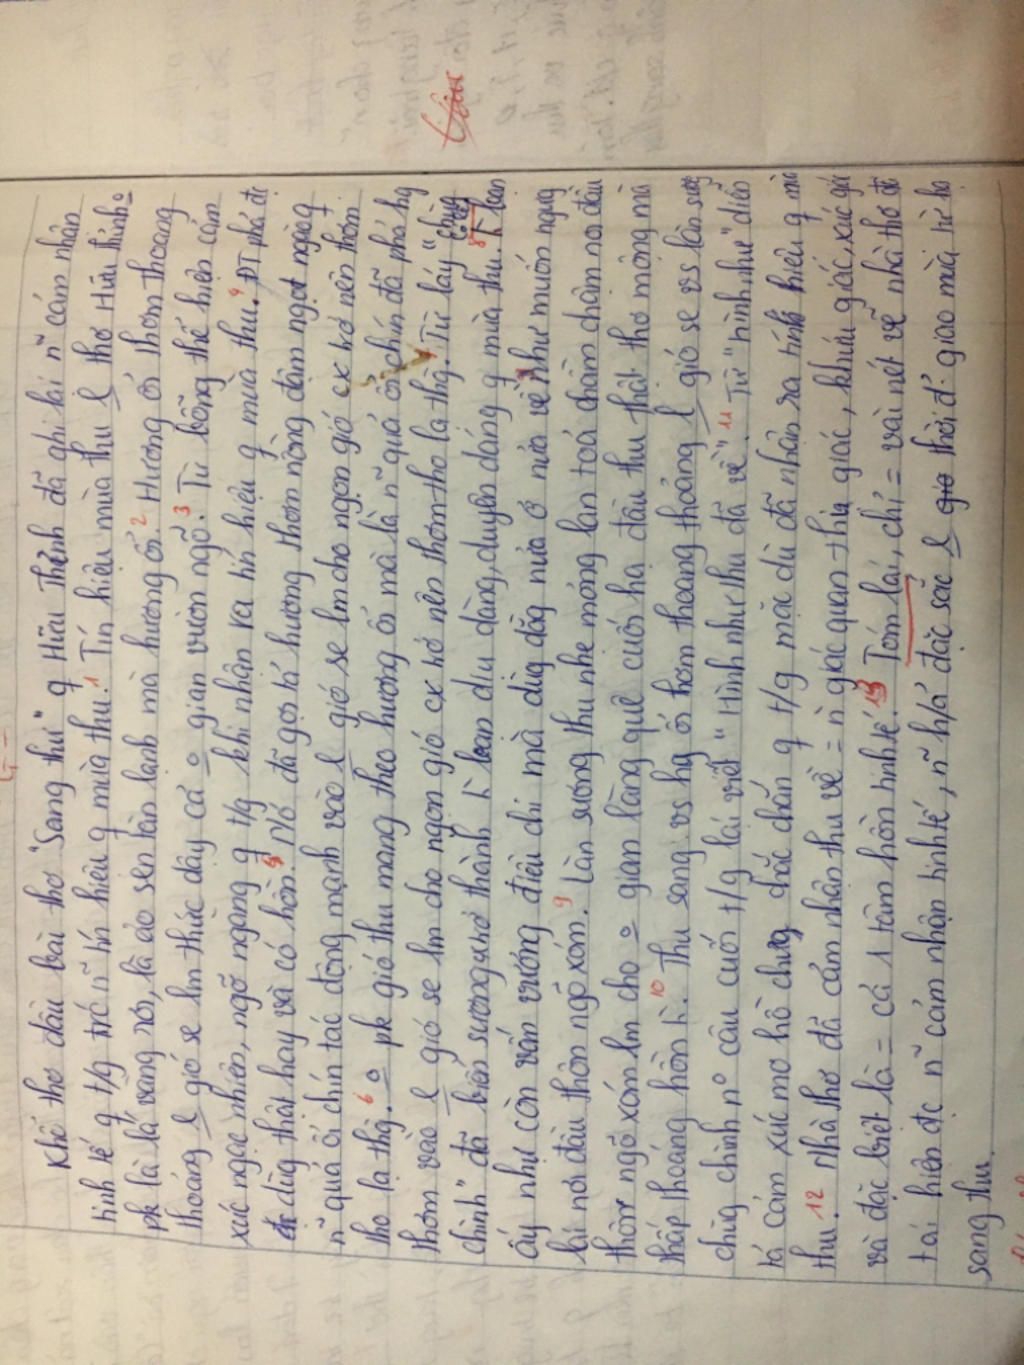 Khổ thơ đầu bài thơ "Sang thu" q Hữu Thỉnh đã ghi lại n~ cảm nhận
tinh tế q t/g trc n~ tín hiệu q mùa thu. 1 Tín hiệu mùa thu l thơ Hữu Thỉnh o
pk là lá vàng rơi, là áo sen tàn lạnh mà hương ổi. 2 Hương ổi thơm thoang
thoảng l gió se lm thức dậy cả o gian vườn ngõ. 3 Từ bỗng thể hiện cảm
xúc ngạc nhiên, ngỡ ngàng q t/g khi nhận ra tín hiệu q mùa thu. 4 ĐT phả đc
dùg thật hay và có hồn. 5 Nó đã gợi tả hương thơm nồng đậm ngọt ngào q
n~ quả ổi chín tác động mạnh vào l gió se lm cho ngọn gió cx trở nên thơm
tho lạ thg. 6 o pk gió thu mang theo hương ổi mà là n~ quả ổi chín đã phả hg
thơm vào l gió se lm cho ngọn gió cx trở nên thơm tho lạ thg. 7 Từ láy "chùng
chình" đã biến sương thành h` dịu dàng, duyên dáng q mùa thu. 8 L` sương
ấy như còn vấn vương điều chi mà dùg dằg nửa ở nửa về như muốn ngưg
lại nơi đầu thôn ngõ xóm. 9 Làn sương thu nhẹ mỏng lan toả chầm chậm nơi đầu
thôn ngõ xóm lm cho o gian làng quê cuối hạ đầu thu thật thơ mộng mà
thấp thoáng hồn h`. 10 Thu sang vs hg ổi thơm thoang thoảng l gió se vs làn sươg
chùg chình n° câu cuối t/g lại viết "Hình như thu đã về". 11 Từ "hình như" diễn
tả cảm xúc mơ hồ chưa chắc chắn q t/g mặc dù đã nhận ra tính hiệu q mùa
thu. 12 Nhà thơ đã cảm nhận thu về = n` giác quan thị giác, khứu giác, xúc giác
và đặc biệt là = cả 1 tâm hồn tinh tế. 13 Tóm lại, chỉ = vài nét vẽ nhà thơ đã
tái hiện đc n~ cảm nhận tinh tế, n~ h/ả đặc sắc l thời đ' giao mùa từ hạ
sang thu.